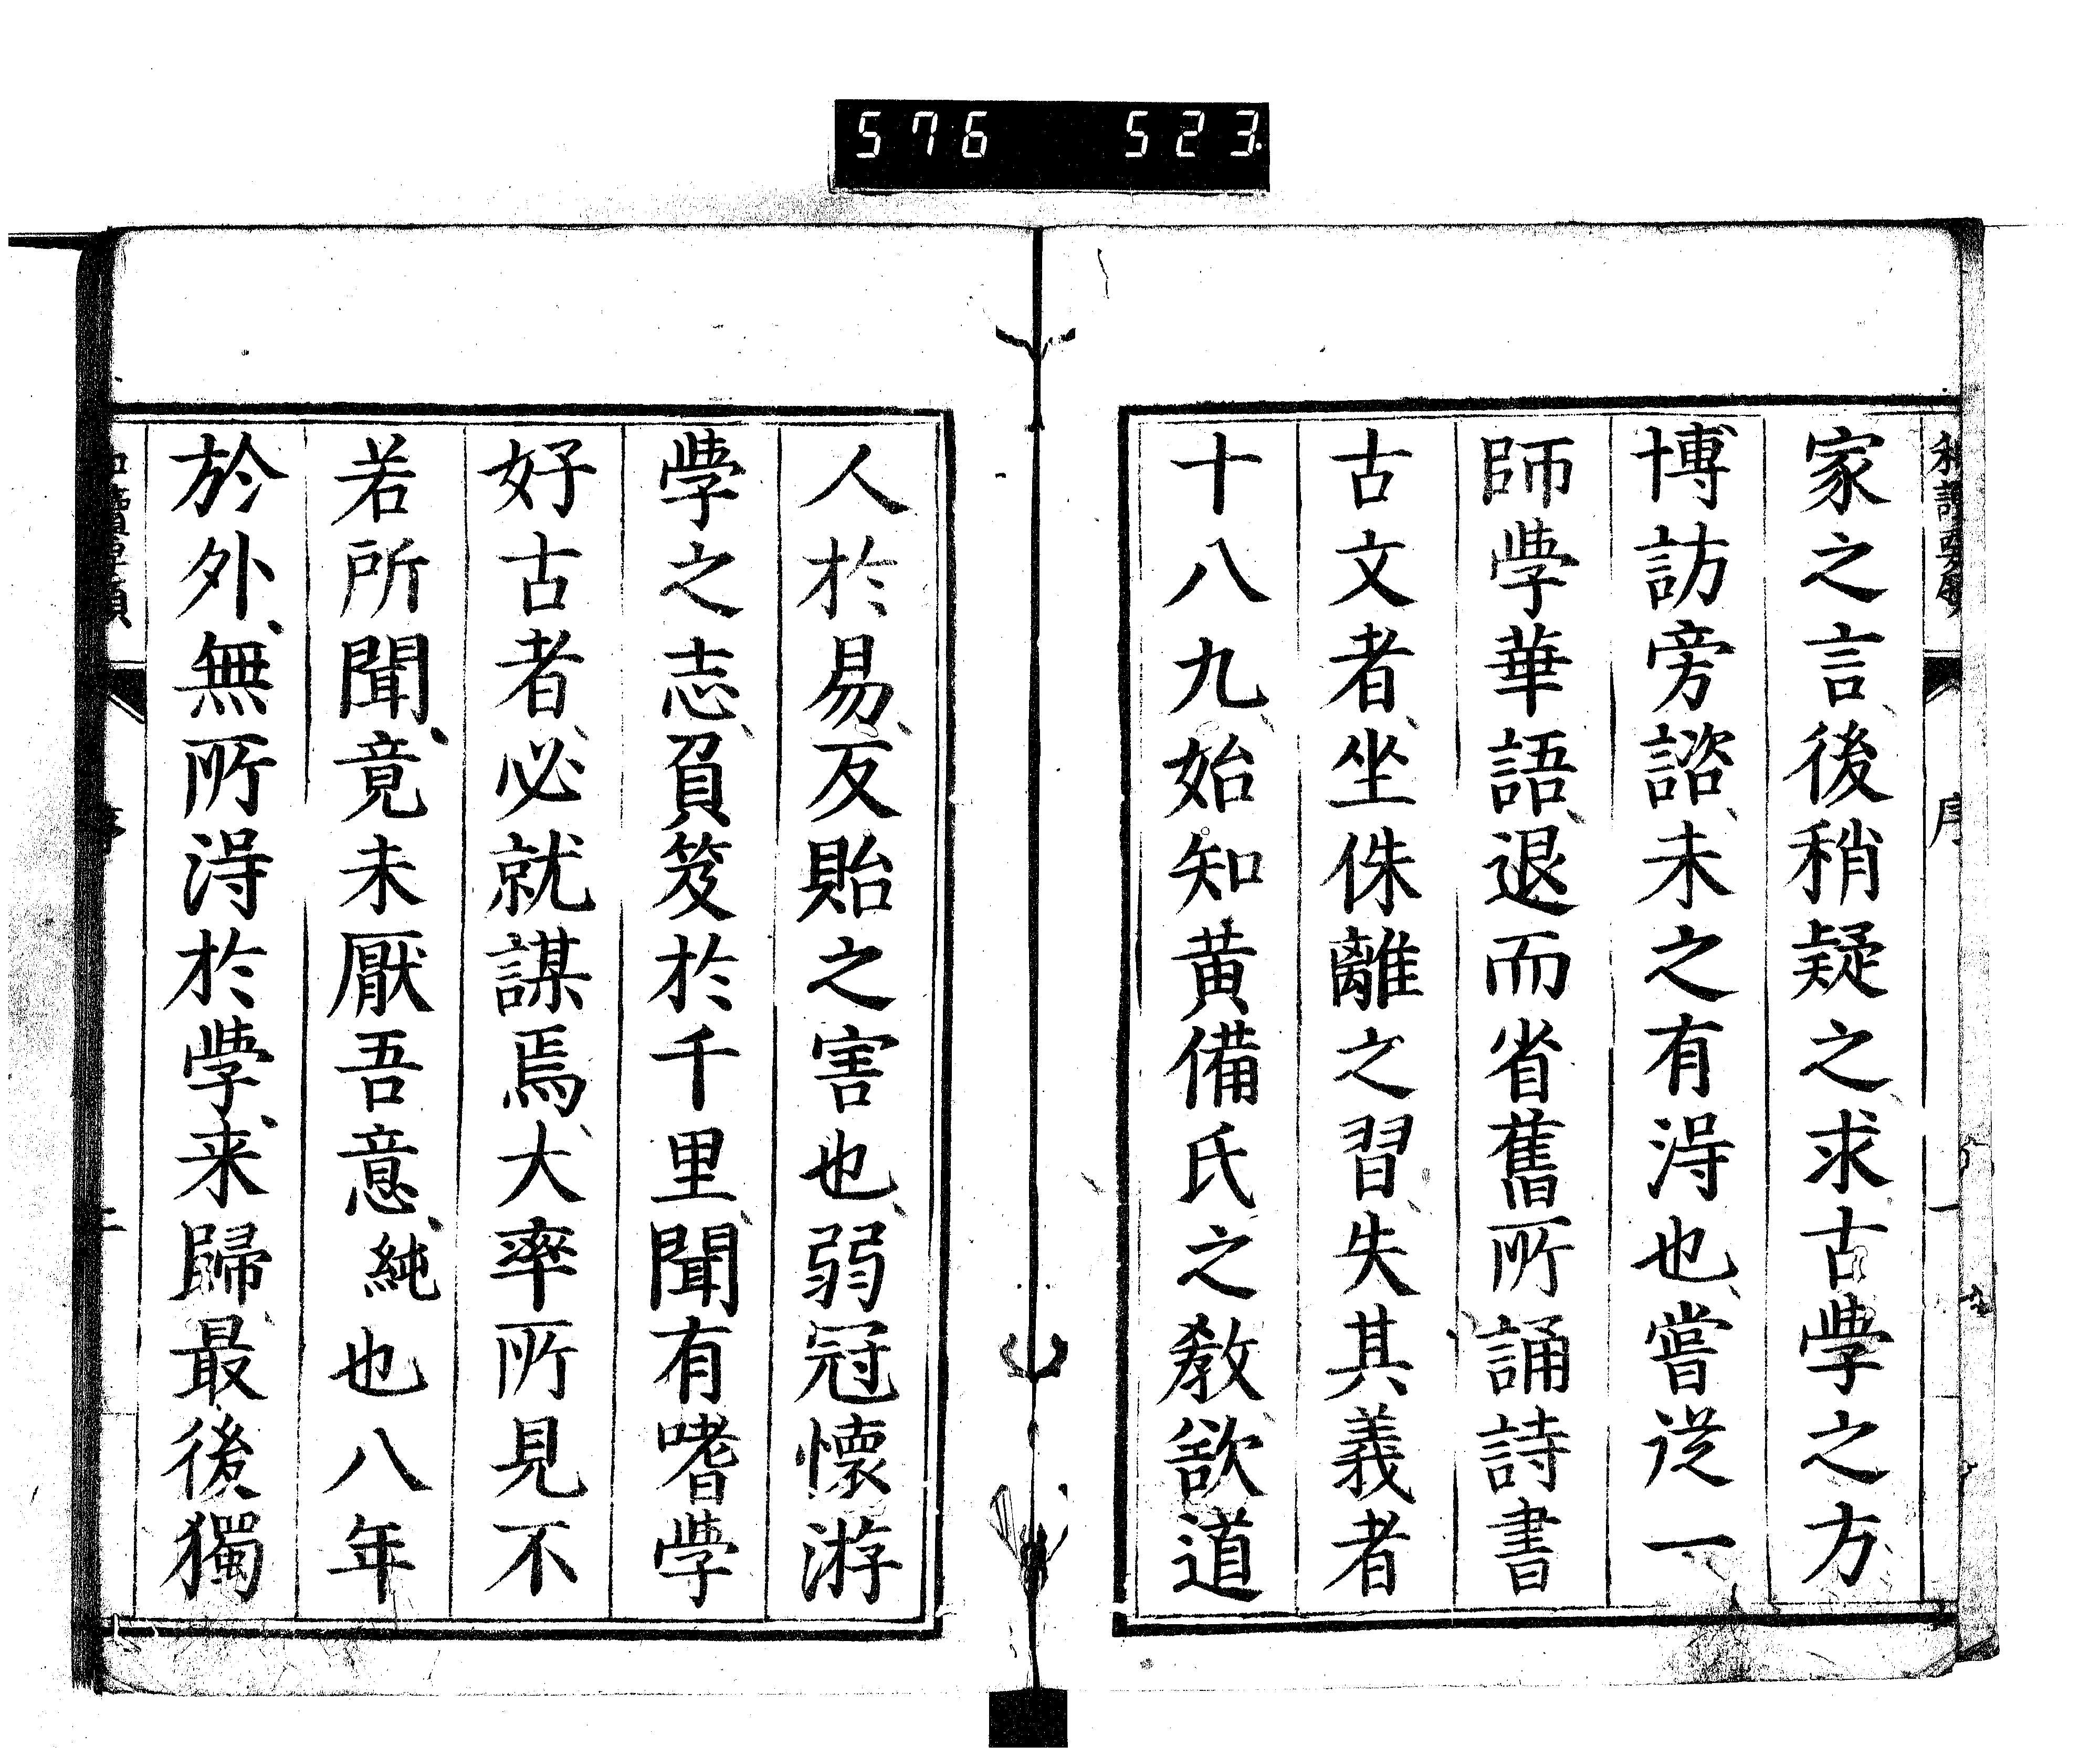 576 523
家之言、後稍疑之、求古學之方
博訪旁諮、未之有得也、嘗従一
師學華語、退而省舊所誦詩書
古文者、坐侏離之習、失其義者
十八九、始知黄備氏之教、欲道
人於易、反貽之害也、弱冠懷游
學之志、負笈於千里、聞有嗜學
好古者、必就謀焉、大率所見不
若所聞、竟未厭吾意、純也八年
於外、無所得於學、来歸、最後獨